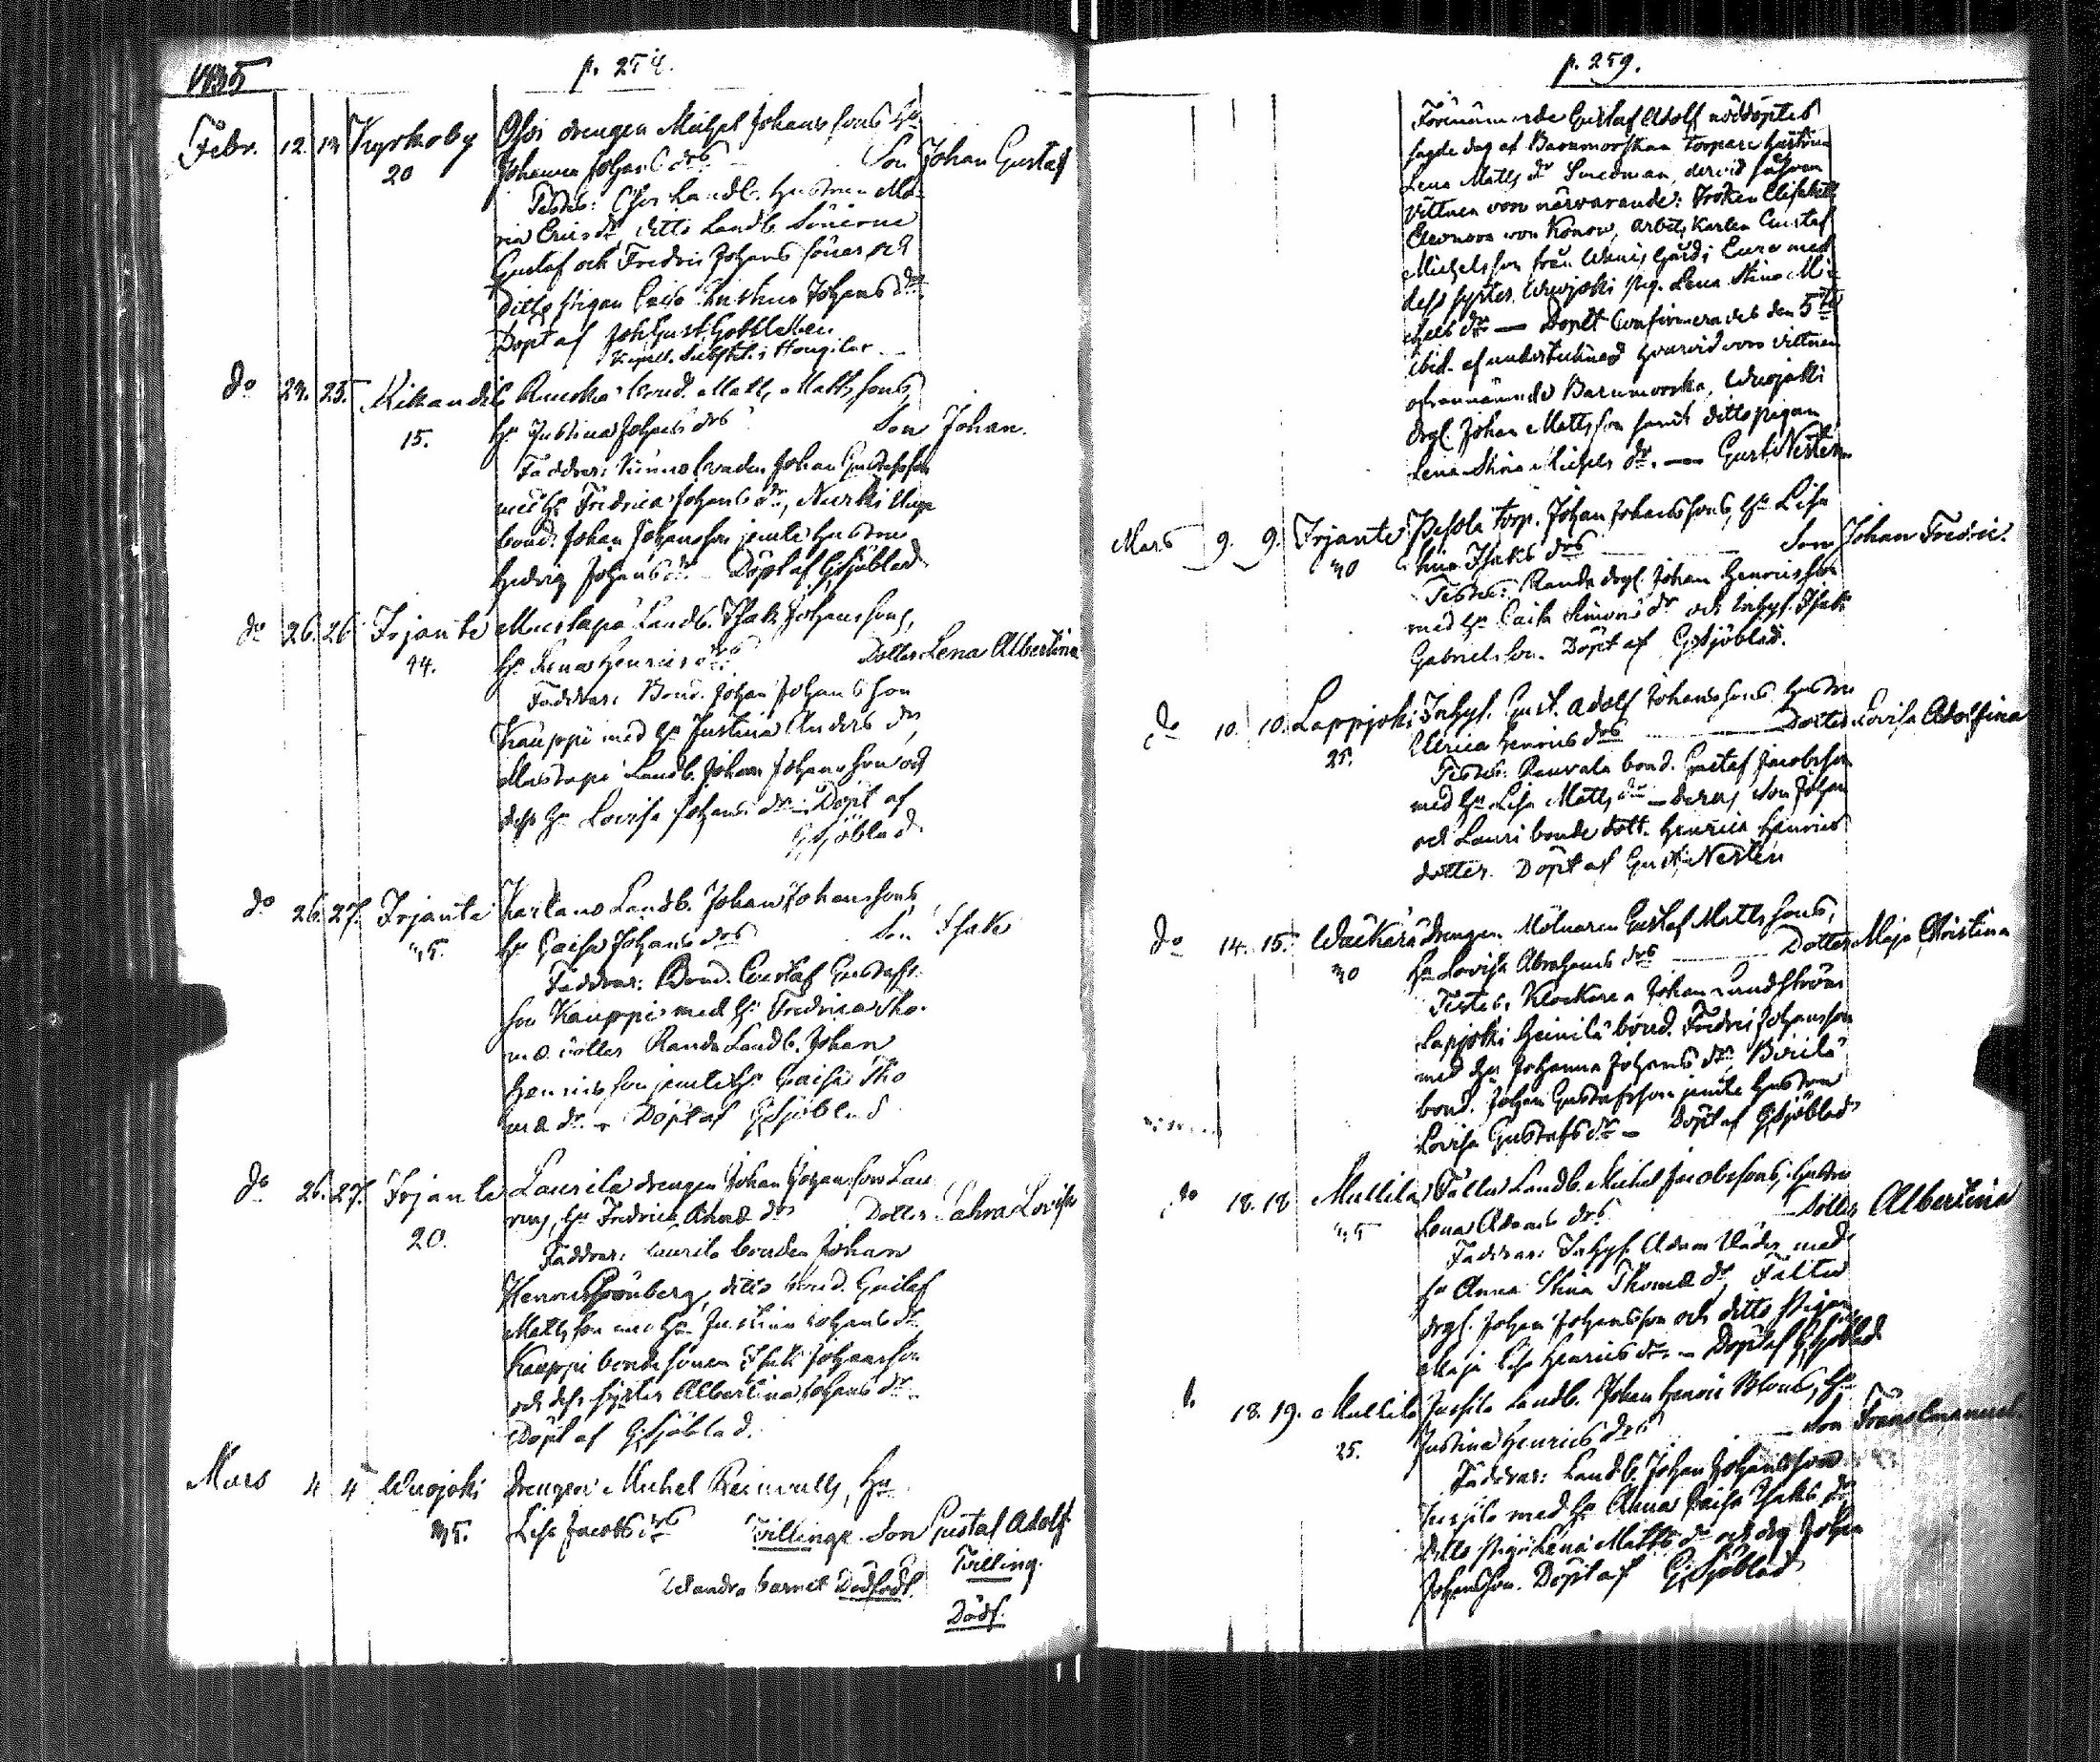 1835
p. 254.
Febr. 12. 13 Kyrkoby drengen Michel Johanssons Hu
20 Johanna Johans drs Son Johan Gustaf
Testes: Landb. Hustrun Ma-
ria Erics dr, ditto Landb. Sönerne
Gustaf och Fredric Johans söner och
ditto pigan Johans dr
Döpt af Joh. Gust.
i Honგilax
do 23. 25. Bond. Matts Mattssons
15. Hu Justina Johans drs Son Johan.
Faddrar: Johan Gustafsson
med Hu Fredrica Johans dr, Nurki
bond. Johan Johansson jemte hustrun
Hedvig Johans dr Döpt af GSjöblad
do 26. 26 Irjante Landb. Isak Johanssons,
44. Hu Lena Henrics drs Dotter Lena Albertina
Faddrar: Bond. Johan Johansson
Kauppi med Hu Justina Anders dr,
Landb. Johan Johansson och
dess Hu Lovisa Johans dr. Döpt af
GSjöblad
do 26. 27. Irjante Kartano Landb. Johan Johanssons
35. Hu Caisa Johans drs Son Isak
Faddrar: Bond. Gustaf Gustafs-
son Kauppi med Hu Fredrica Tho-
mæ dotter Randa Landb. Johan
Henricsson jemte Hu Caisa Tho
mæ dr. Döpt af GSjöblad
do 26. 27. Irjante Laurila drengen Johan Johansson Lau
rens, Hu Fredrica drs Dotter Lovisa
20.
Faddrar: Laurila bonden Johan
Grönberg, ditto bond. Gustaf
Mattsson med Hu Justina Johans dr
Kauppi bonde sonen Isak Johansson
och dess syster Albertina Johans dr
Döpt af GSjöblad.
Mars 4 4 Wuojoki drengen Michel Hu
35. Lisa Jacobs drs Tvillinge Son Gustaf Adolf
Tvilling.
andra barnet Dödfödt.
Dödf.
p. 259.
Förenämnde Gustaf Adolf nöddöptes
sagde dag af Barnmorskan torpare hustrun
Lena Matts dr Snedman, dervid såsom
vittnen voro närvarande: Fröken Elisabeth
Eleonora von Konow, arbets Karlen Gustaf
Michelsson från gård i Eura med
dess syster, Wuojoki pig. Lena Stina Mi-
chels dr — Dopet Confirmerades den 5te
ibid. af undertecknad hvarvid voro vittnen
ofvannämnde Barnmorska, Wuojoki
drgl. Johan Mattsson samt ditto pigan
Lena Stina Michels dr. — Gust. Nestén
Mars 9. 9. Irjante torp. Johan Johanssons, Hu Lisa
30 Stina Isaks drs Son Johan Fredric.
Testes: Randa drgl. Johan Henricsson
med Hu Caisa Simons dr och Inhys. Isak
Gabrielsson. Döpt af GSjöblad.
do 10. 10. Lappjoki Inhys. Gust. Adolf Johanssons hustru
25. Ulrica Henrics drs Dotter Lovisa Adolfina
Testes: Rauvala bond. Gustaf Jacobsson
med Hu Lisa Matts dr — deras son Johan
och Lauri bonde dott. Henrica Henrics
dotter. Döpt af Gust. Nestén
do 14. 15. drengen Mölnaren Gustaf Mattssons,
30 Hu Lovisa Abrahams drs Dotter Maja Christina
Testes: Klockaren Johan Lundström
Lapjoki Heinilä bond. Fredric Johansson
med Hu Johanna Johans dr,
bond. Johan Gustafsson jemte hustrun
Lovisa Gustafs dr — Döpt af GSjöblad
do 18. 18 Mullila Fälttu Landb. Michel Jacobssons, hustru
35 Lena Adams drs Dotter Albertina
Faddrar: Inhys. Adam med
Hu Anna Stina Thomæ dr, Fälttu
drgl. Johan Johansson och ditto pigan
Maja Lisa Henrics dr. — Döpt af GSjöblad
do 18. 19. Mullila Landb. Johan Henric Hu
25. Justina Henrics drs Son Frans Emanuel.
Faddrar: Landb. Johan Johansson
med Hu Anna Caisa Isaks dr
ditto pigan Lena Matts dr och drg Johan
Johansson. Döpt af GSjöblad